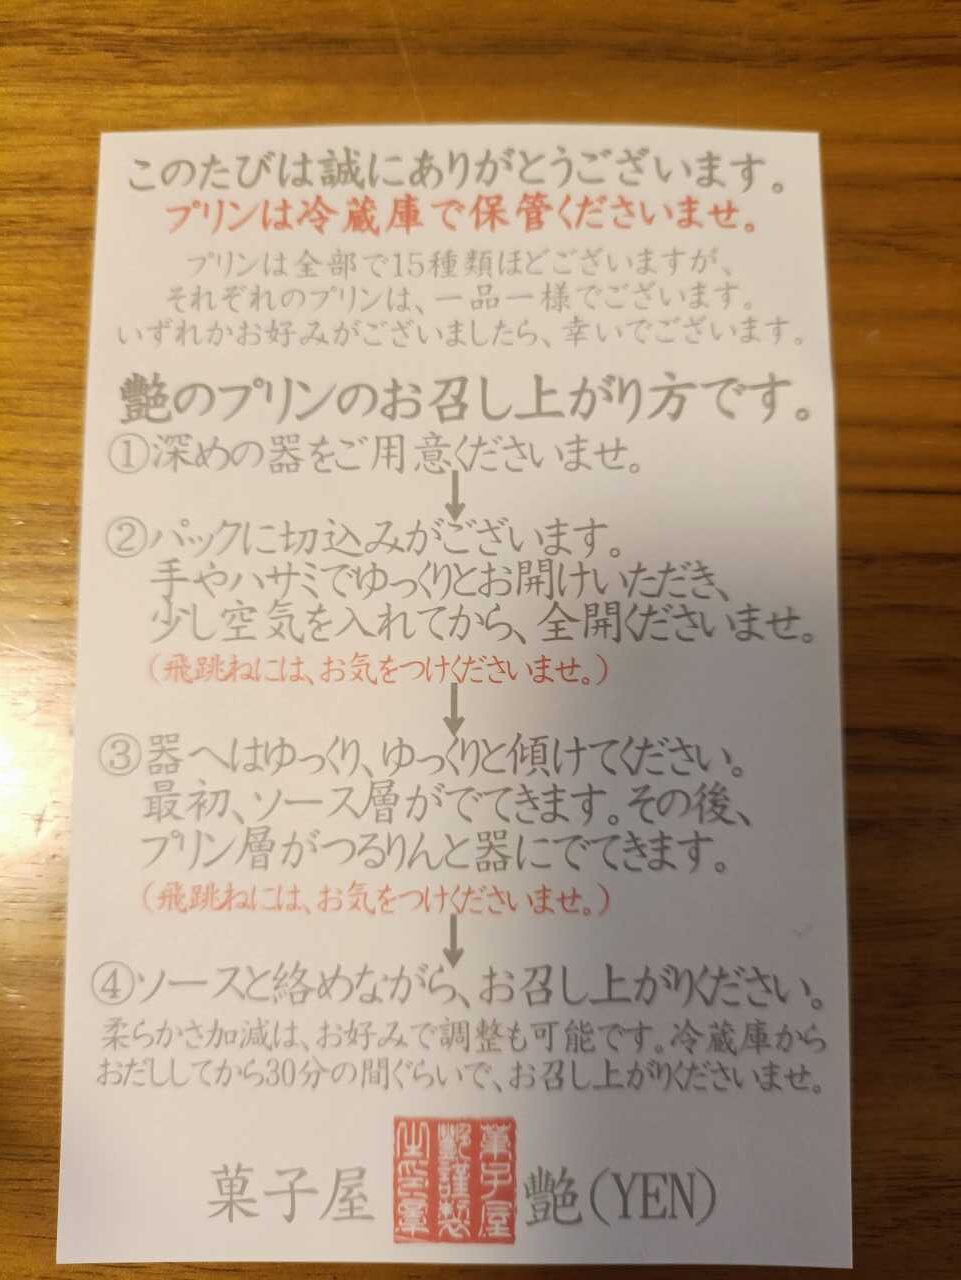 このたびは誠にありがとうございます。
プリンは冷蔵庫で保管くださいませ。
プリンは全部で15種類ほどございますが、
それぞれのプリンは、一品一様でございます。
いずれかお好みがございましたら、幸いでございます。
艶のプリンのお召し上がり方です。
①深めの器をご用意くださいませ。
↓
②パックに切込みがございます。
手やハサミでゆっくりとお開けいただき、
少し空気を入れてから、全開くださいませ。
（飛跳ねには、お気をつけくださいませ。）
↓
③器へはゆっくり、ゆっくりと傾けてください。
最初、ソース層がでてきます。その後、
プリン層がつるりんと器にでてきます。
（飛跳ねには、お気をつけくださいませ。）
↓
④ソースと絡めながら、お召し上がりください。
柔らかさ加減は、お好みで調整も可能です。冷蔵庫から
おだししてから30分の間ぐらいで、お召し上がりくださいませ。
菓子屋 艶(YEN)
菓子屋
艶謹製